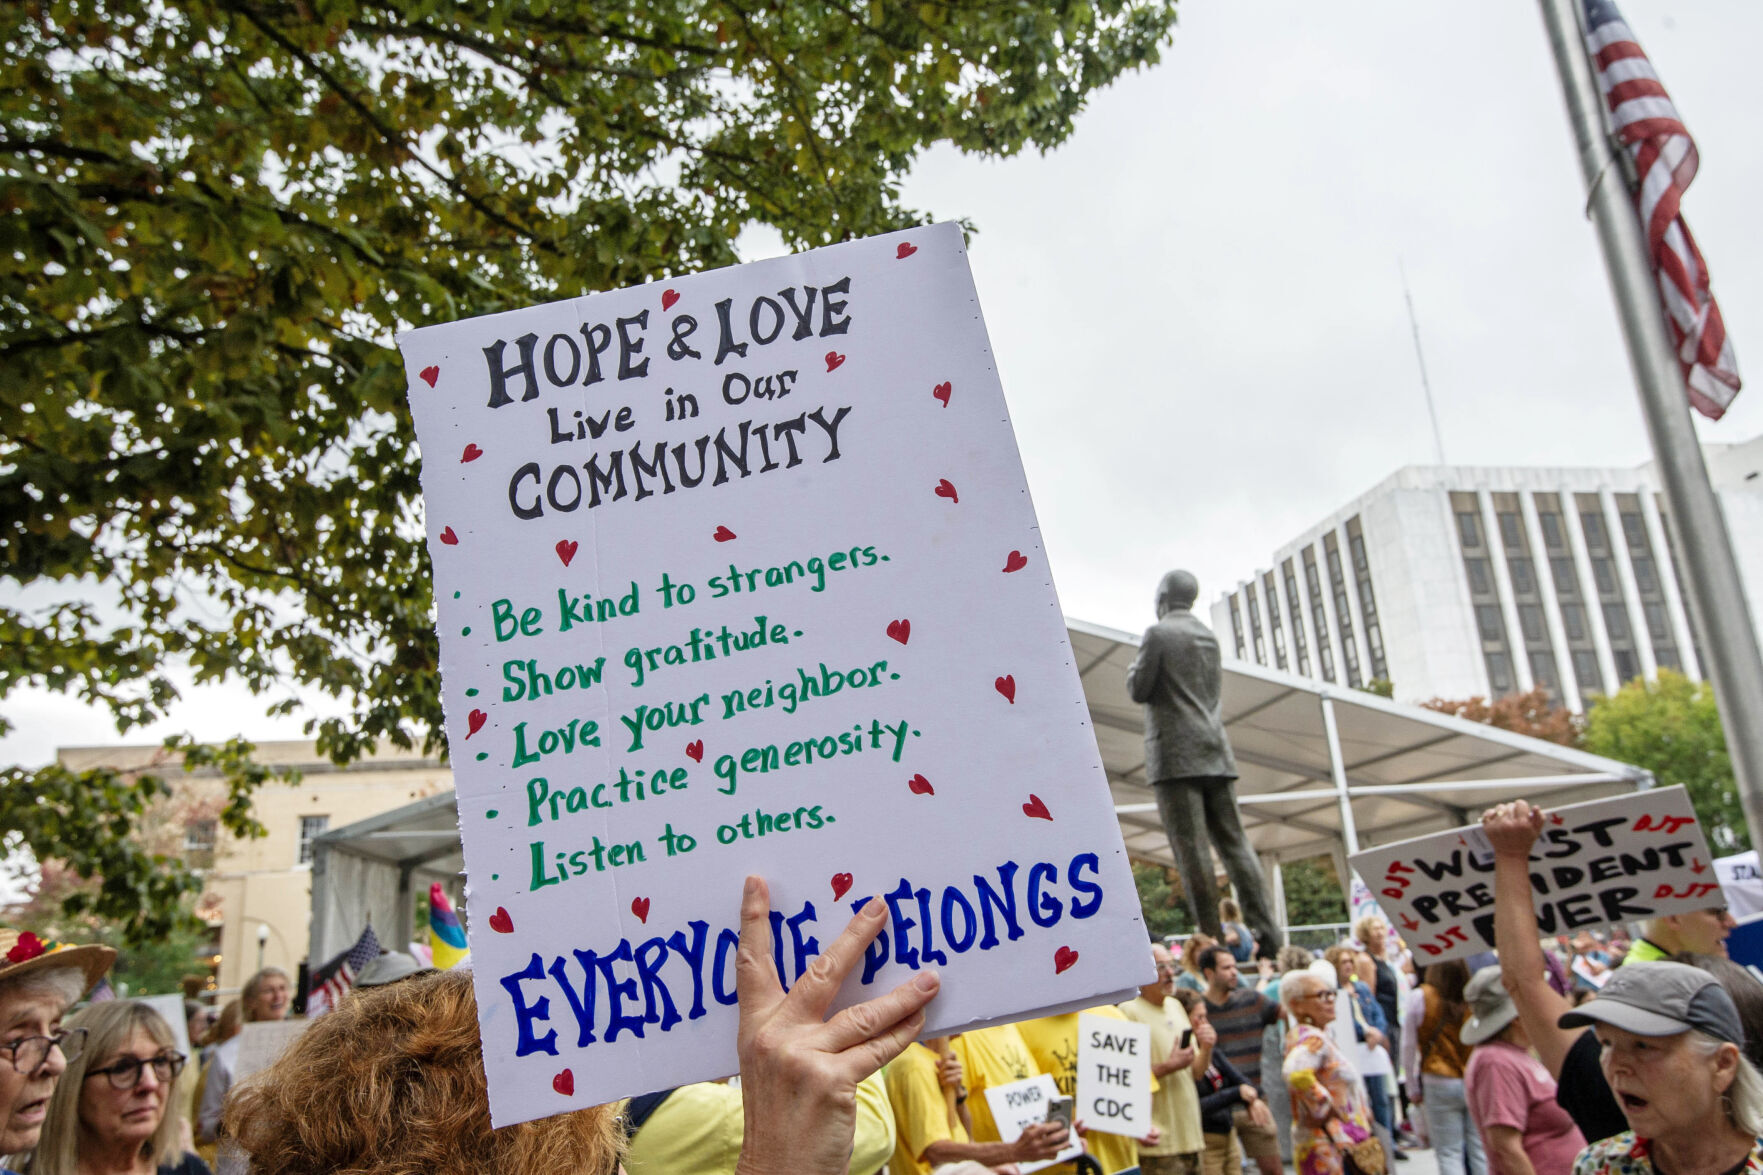 HOPE & LOVE
Live in Our
COMMUNITY
• Be kind to strangers.
• Show gratitude.
• Love your neighbor.
• Practice generosity.
• Listen to others.
EVERYONE BELONGS
DJT WORST DJT
PRESIDENT
DJT EVER DJT
SAVE
THE
CDC
POWER